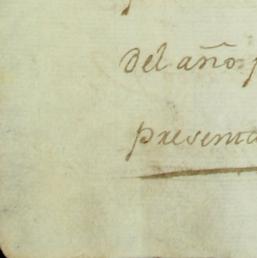 del año
presenta